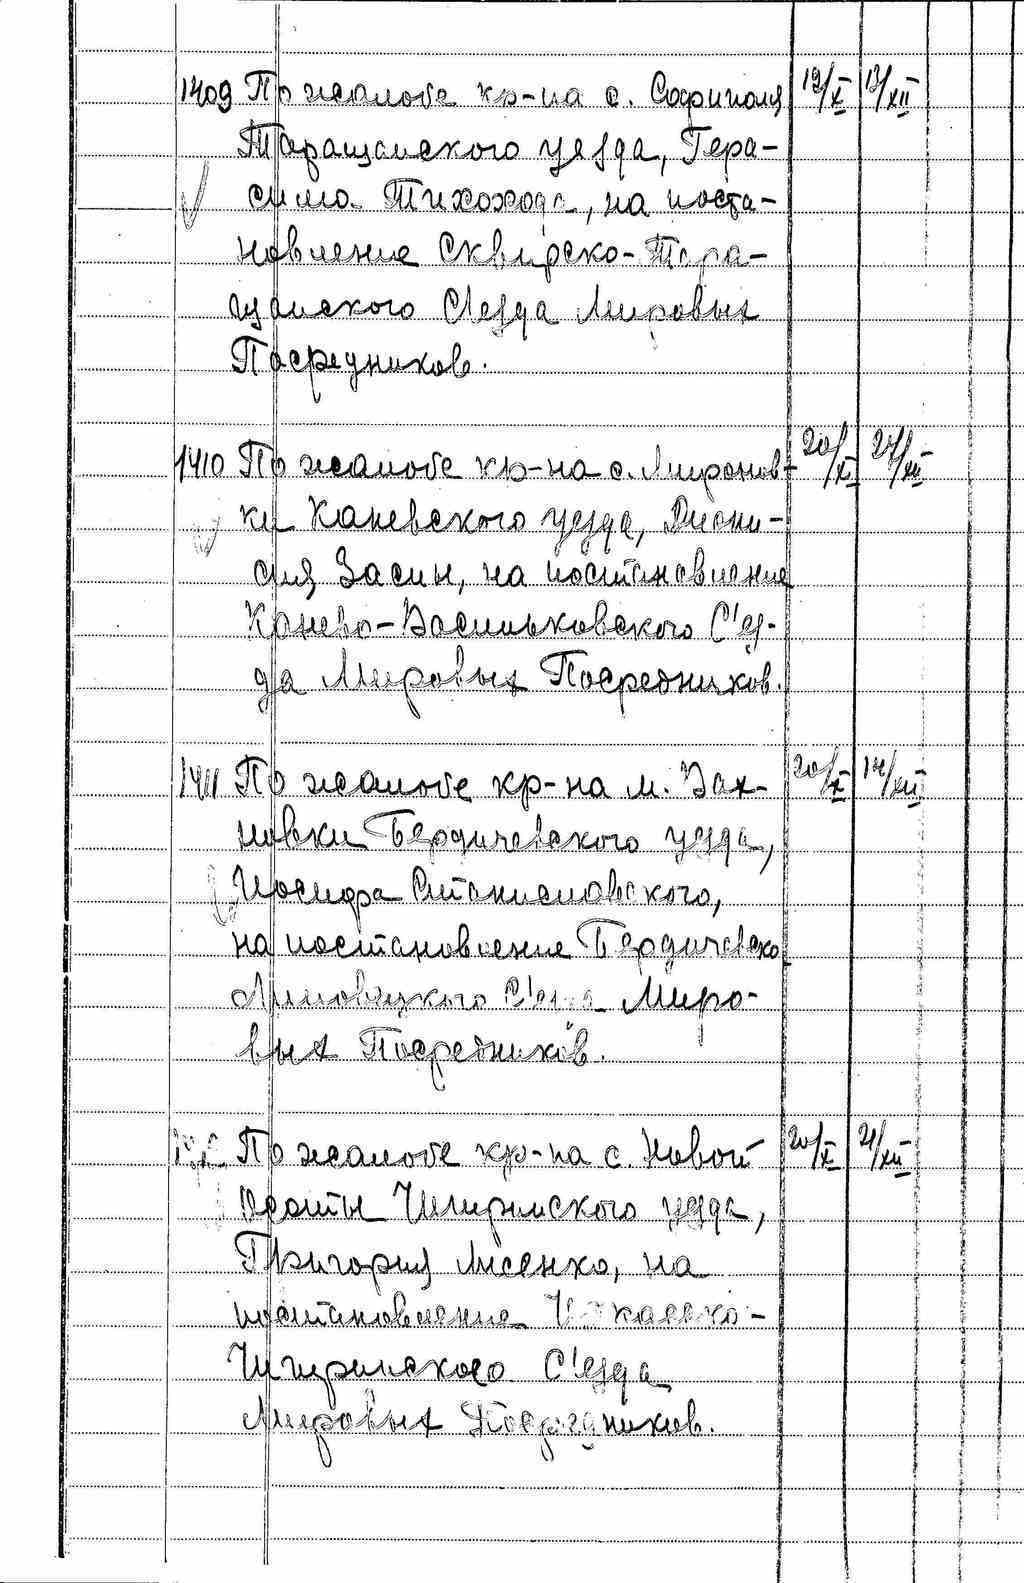 1409 По жалобе кр-на с. Софиполя 19/X 13/XII
Таращанского уезда, Гера-
сима Тихохода, на поста-
новление Сквирско-Тара-
щанского С'езда Мировых
Посредников.
1410 По жалобе кр-на с. Миронов- 20/X 27/XII
ки Каневского уезда, Диони-
сия Засин, на постановление
Канево-Васильковского С'ез-
да Мировых Посредников.
1411 По жалобе кр-на м. Вах- 20/X 14/XII
новки Бердичевского уезда,
Иосифа Станиславского,
на постановление Бердичевско
Липовецкого С'езда Миро-
вых Посредников.
По жалобе кр-на с. Новой 20/X 21/XII
Осоты Чигиринского уезда,
Григория Лисенко, на
постановление
Чигиринского С'езда
Мировых Посредников.